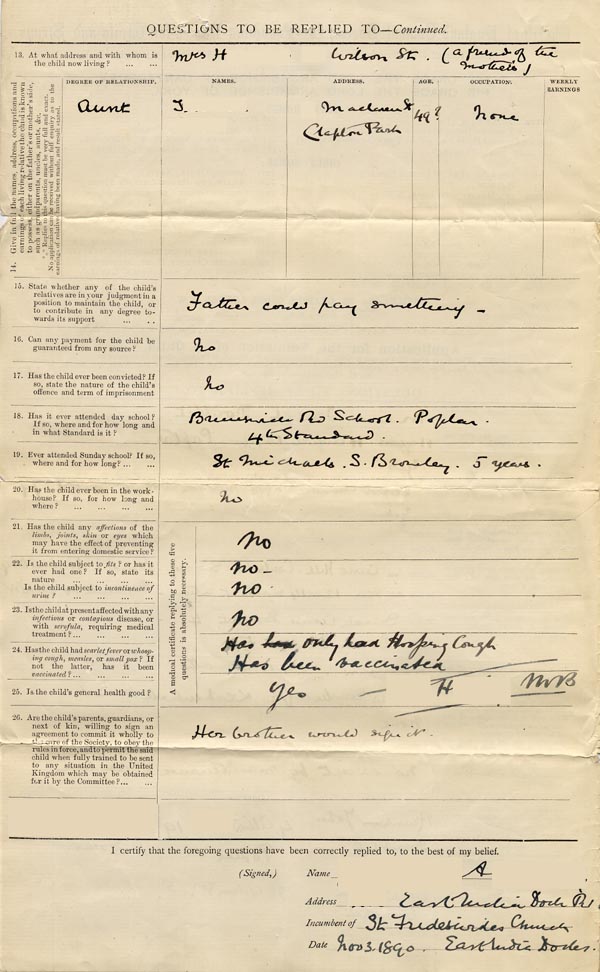 QUESTIONS TO BE REPLIED TO—Continued.
13. At what address and with whom is
the child now living? ... ...
Mrs H Wilson St. (a friend of the
mother's)
14. Give in full the names, address, occupations and
earnings of each living relative the child is known
to possess, either on the father's or mother's side,
such as grandparents, uncles, aunts, &c.
Replies to this question must be very full and exact.
No application can be received without full enquiry as to the
earnings of relatives having been made, and result stated.
DEGREE OF RELATIONSHIP. NAMES. ADDRESS. AGE. OCCUPATION. WEEKLY
EARNINGS
Aunt T. 49? None
Clapton Park
15. State whether any of the child's
relatives are in your judgment in a
position to maintain the child, or
to contribute in any degree to-
wards its support ... ...
Father could pay something –
16. Can any payment for the child be
guaranteed from any source?
No
17. Has the child ever been convicted? If
so, state the nature of the child's
offence and term of imprisonment
No
18. Has it ever attended day school?
If so, where and for how long and
in what Standard is it? ...
Brunswick Rd School. Poplar.
4th Standard.
19. Ever attended Sunday school? If so,
where and for how long? ... ...
St Michaels. S. Bromley. 5 years.
20. Has the child ever been in the work-
house? If so, for how long and
where? ... ... ... ...
No
A medical certificate replying to these five
questions is absolutely necessary.
21. Has the child any affections of the
limbs, joints, skin or eyes which
may have the effect of preventing
it from entering domestic service?
No
22. Is the child subject to fits? or has it
ever had one? If so, state its
nature ... ... ... ...
No –
Is the child subject to incontinence of
urine? ... ... ... ...
No.
23. Is the child at present affected with any
infectious or contagious disease, or
with scrofula, requiring medical
treatment? ... ... ... ...
No
24. Has the child had scarlet fever or whoop-
ing cough, measles, or small pox? If
not the latter, has it been
vaccinated? ... ... ... ...
Has had only had Hooping Cough
Has been vaccinated
25. Is the child's general health good?
Yes – H MRB
26. Are the child's parents, guardians, or
next of kin, willing to sign an
agreement to commit it wholly to
the care of the Society, to obey the
rules in force, and to permit the said
child when fully trained to be sent
to any situation in the United
Kingdom which may be obtained
for it by the Committee? ... ...
Her brother would sign it.
I certify that the foregoing questions have been correctly replied to, to the best of my belief.
(Signed,) Name A
Address East India Dock Rd
Incumbent of St Frideswides Church
Date Nov 3. 1890. East India Docks.